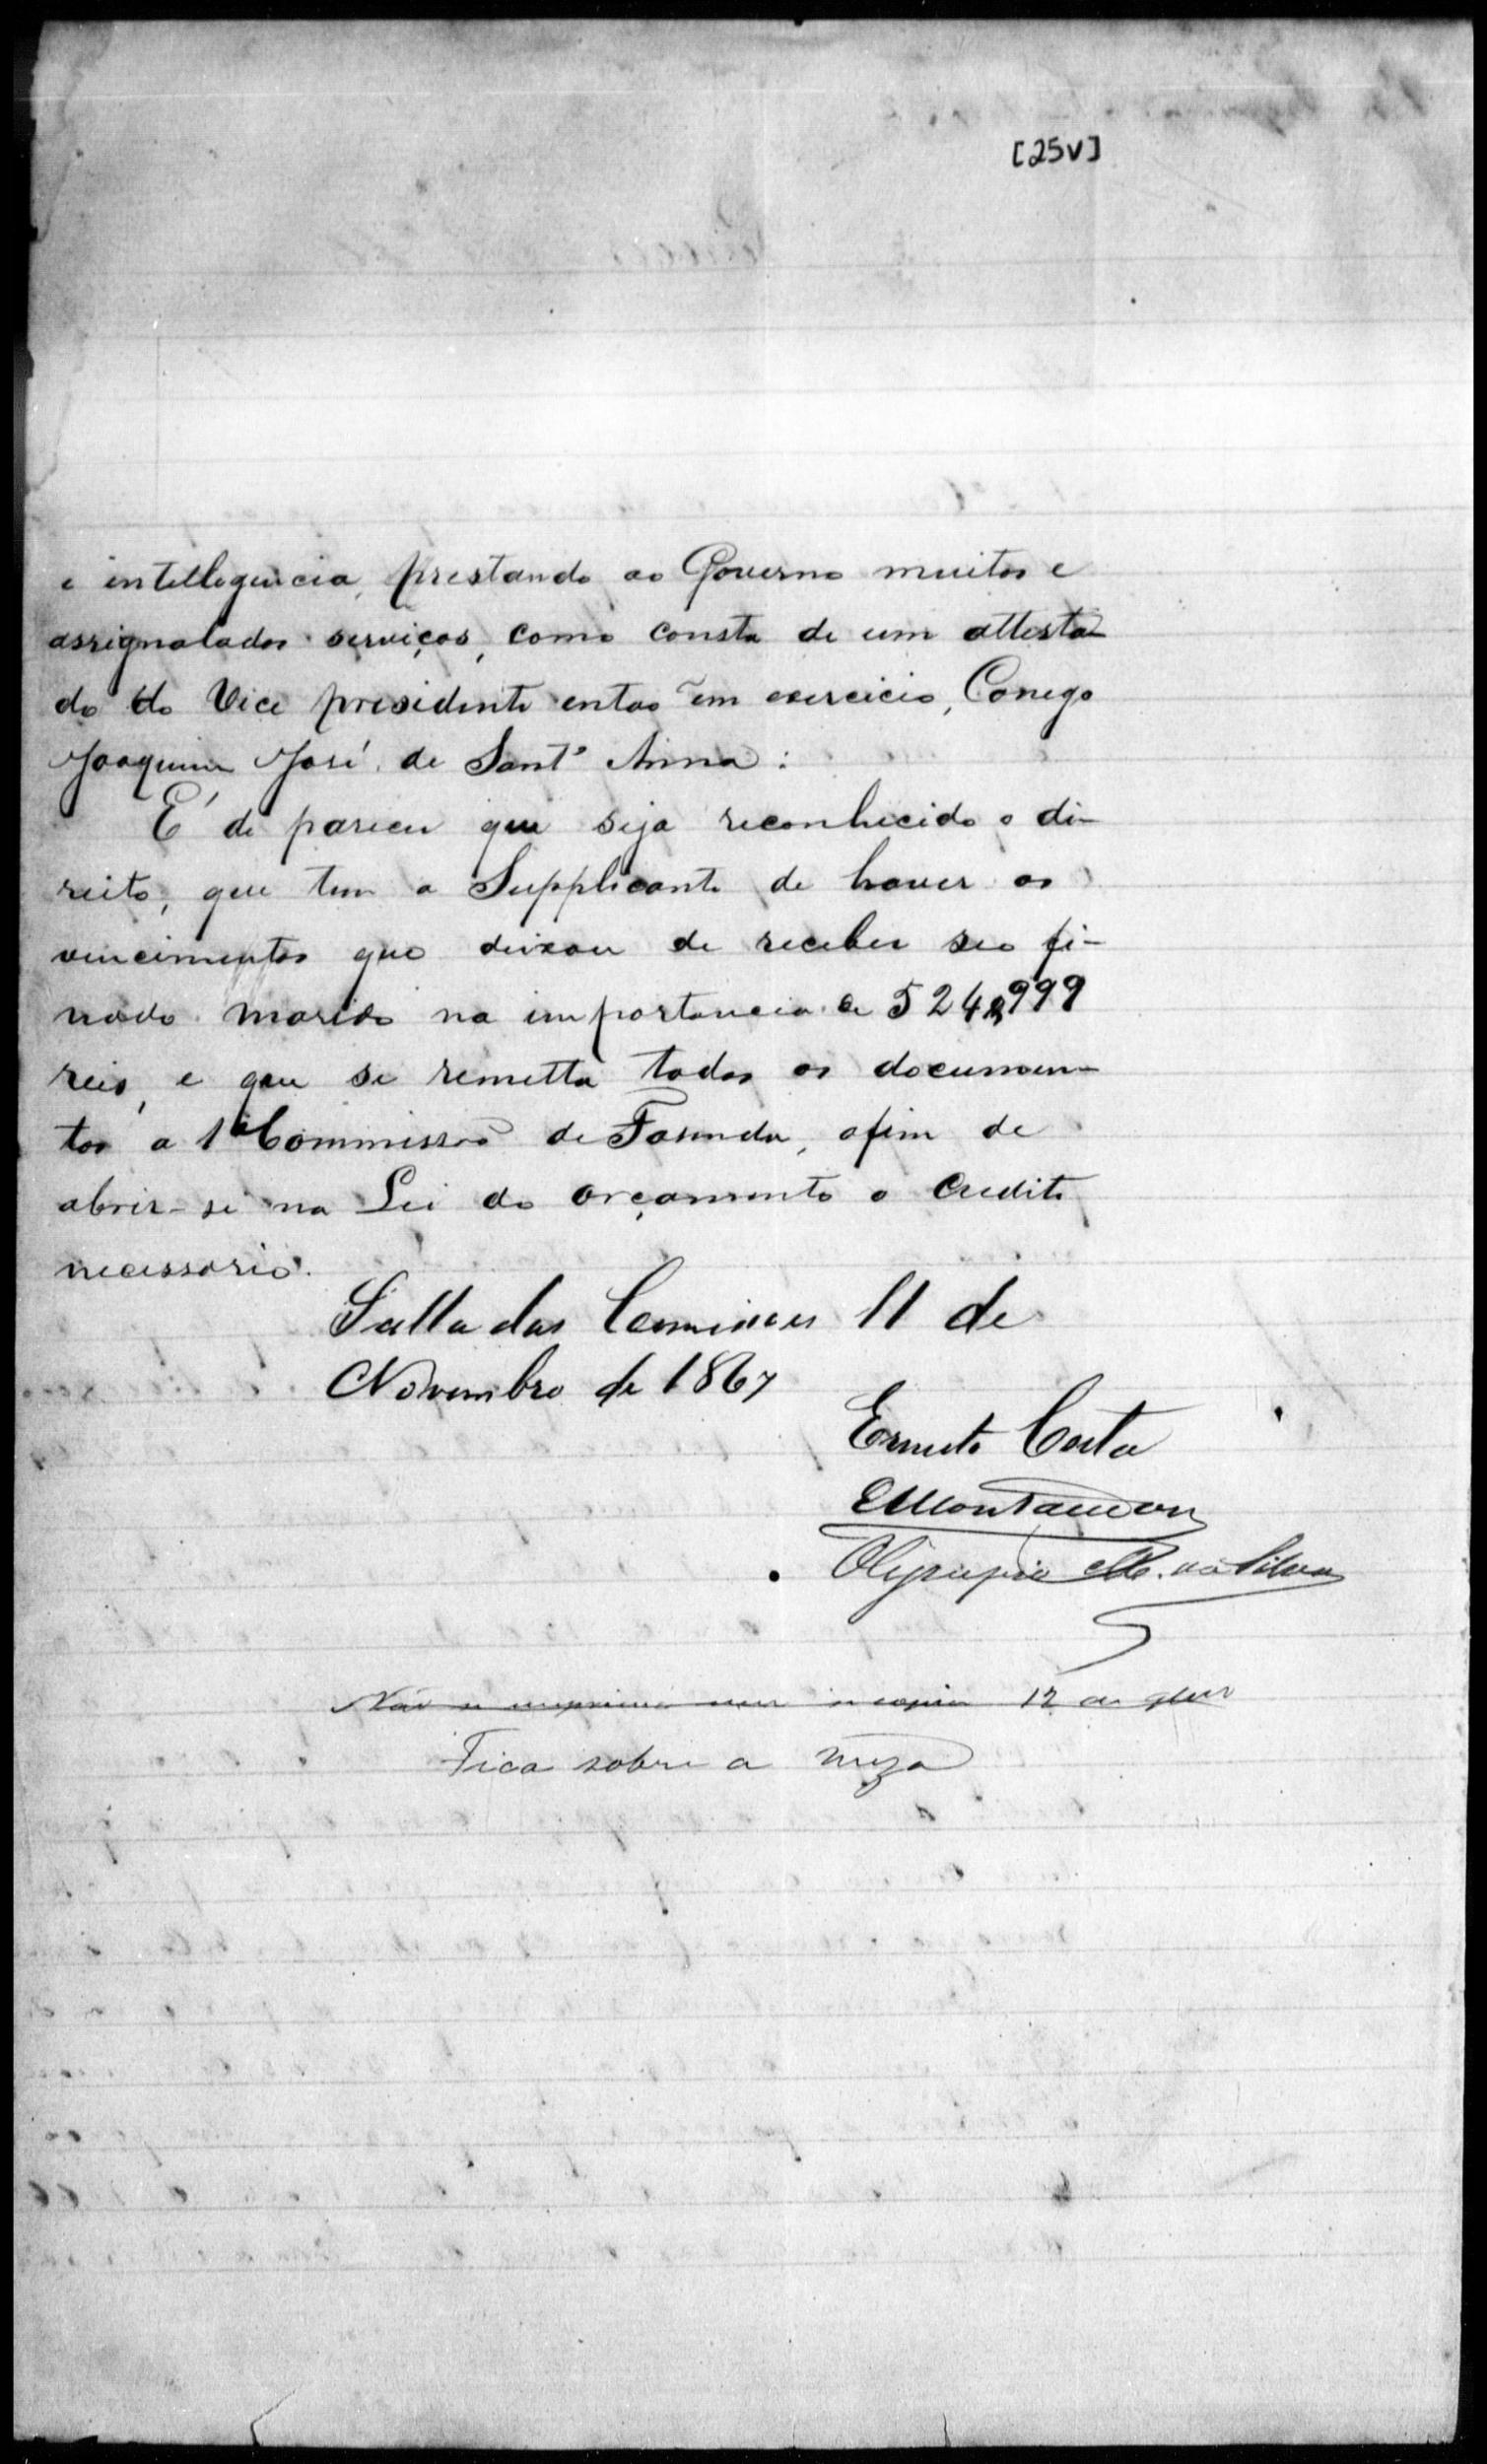 [25v]
e intelligencia, prestando ao Governo muitos e
assignalados serviços, como consta de um attesta-
do do Vice presidente entao em exercicio, Conego
Joaquim José de Sant' Anna:
É de parecer que seja reconhecido o di-
reito, que tem a Supplicante de haver os
vencimentos que deixou de receber seo fi-
nado marido na importancia de 524$999
reis, e que se remetta todos os documen-
tos a 1ª Commissão de Fasenda, afim de
abrir-se na Lei do orçamento o credito
necessario.
Salla das Comissoes 11 de
Novembro de 1867
Ernesto Costa
EMontandon
Olympio M. da Silva
Não se
Fica sobre a meza